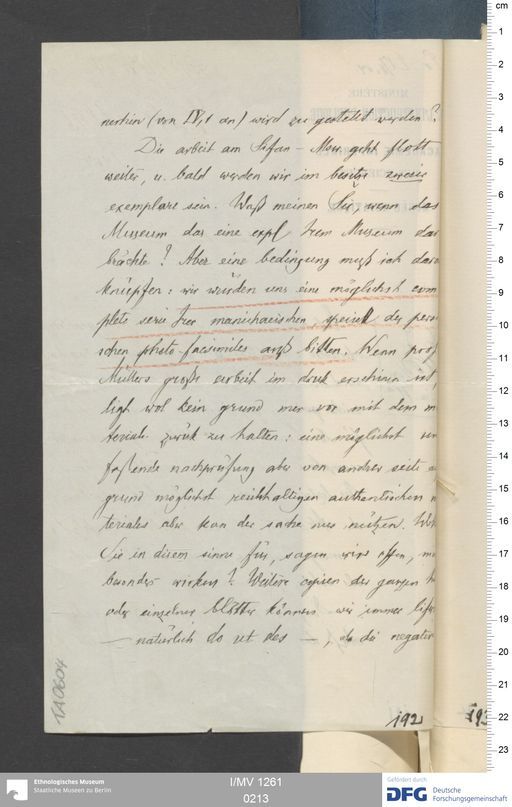 merhin (von IV,1 an) wird zu gestellt werden?
Die arbeit am Sïfan-Mou geht flott
weiter, u. bald werden wir im besitze zweier
exemplare sein. Waß meinen Sie, wenn das
Museum das eine expl Irem Museum dar
brächte? Aber eine bedingung muß ich dara
knüpfen: wir würden uns eine möglichst com
plete serie Irer manichaeischen, speciell der pers
schen photo-facsimiles auß bitten. Wenn prof
Müllers große arbeit im druk erschinen ist,
ligt wol kein grund mer vor mit dem m
teriale zurük zu halten: eine möglichst um
faßende nachprüfung aber von andrer seite a
grund möglichst reichhaltigen authentischen m
teriales aber kan der sache nur nützen.
Sie in disem sinne für, sagen wirs offen,
besonders wirken? Weitere copien des ganzen
oder einzelner blätter können wir immer lifer
— natürlich do ut des —, da die negative
1A0604
192
192
cm
1
2
3
4
5
6
7
8
9
10
11
12
13
14
15
16
17
18
19
20
21
22
23
Ethnologisches Museum
Staatliche Museen zu Berlin
I/MV 1261
0213
Gefördert durch
DFG Deutsche
Forschungsgemeinschaft